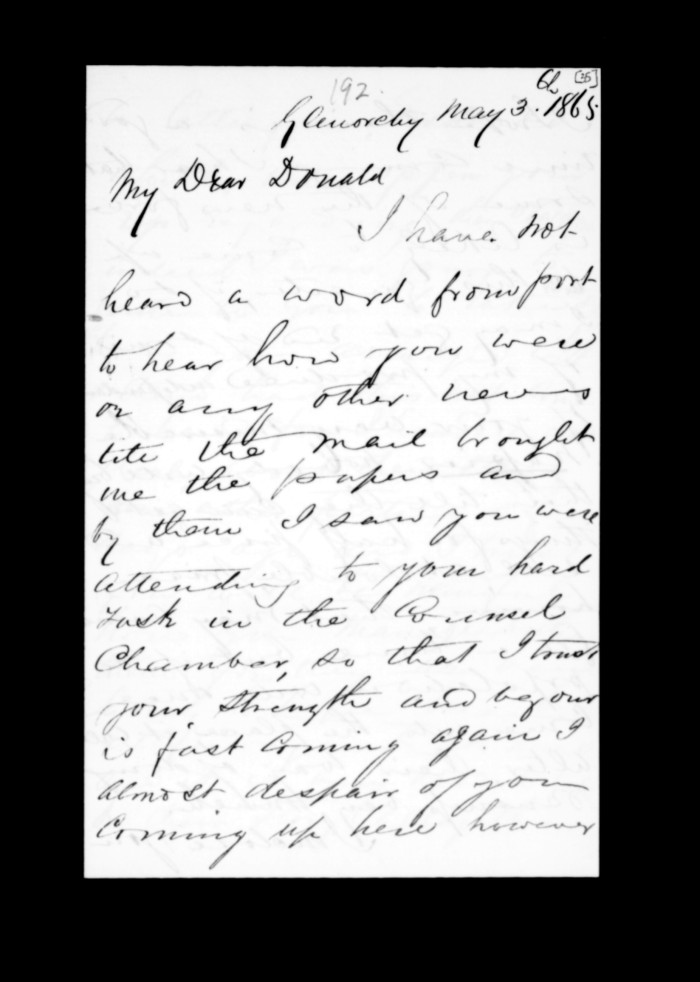 192.
6th [35]
Glenorchy May 3. 1865
My Dear Donald
I have not
heard a word from port
to hear how you were
or any other news
the mail brought
me the papers and
by them I saw you were
attending to your hard
task in the Counsel
Chamber, so that I trust
your strength and vegour
is fast coming again I
almost despair of you
coming up here however